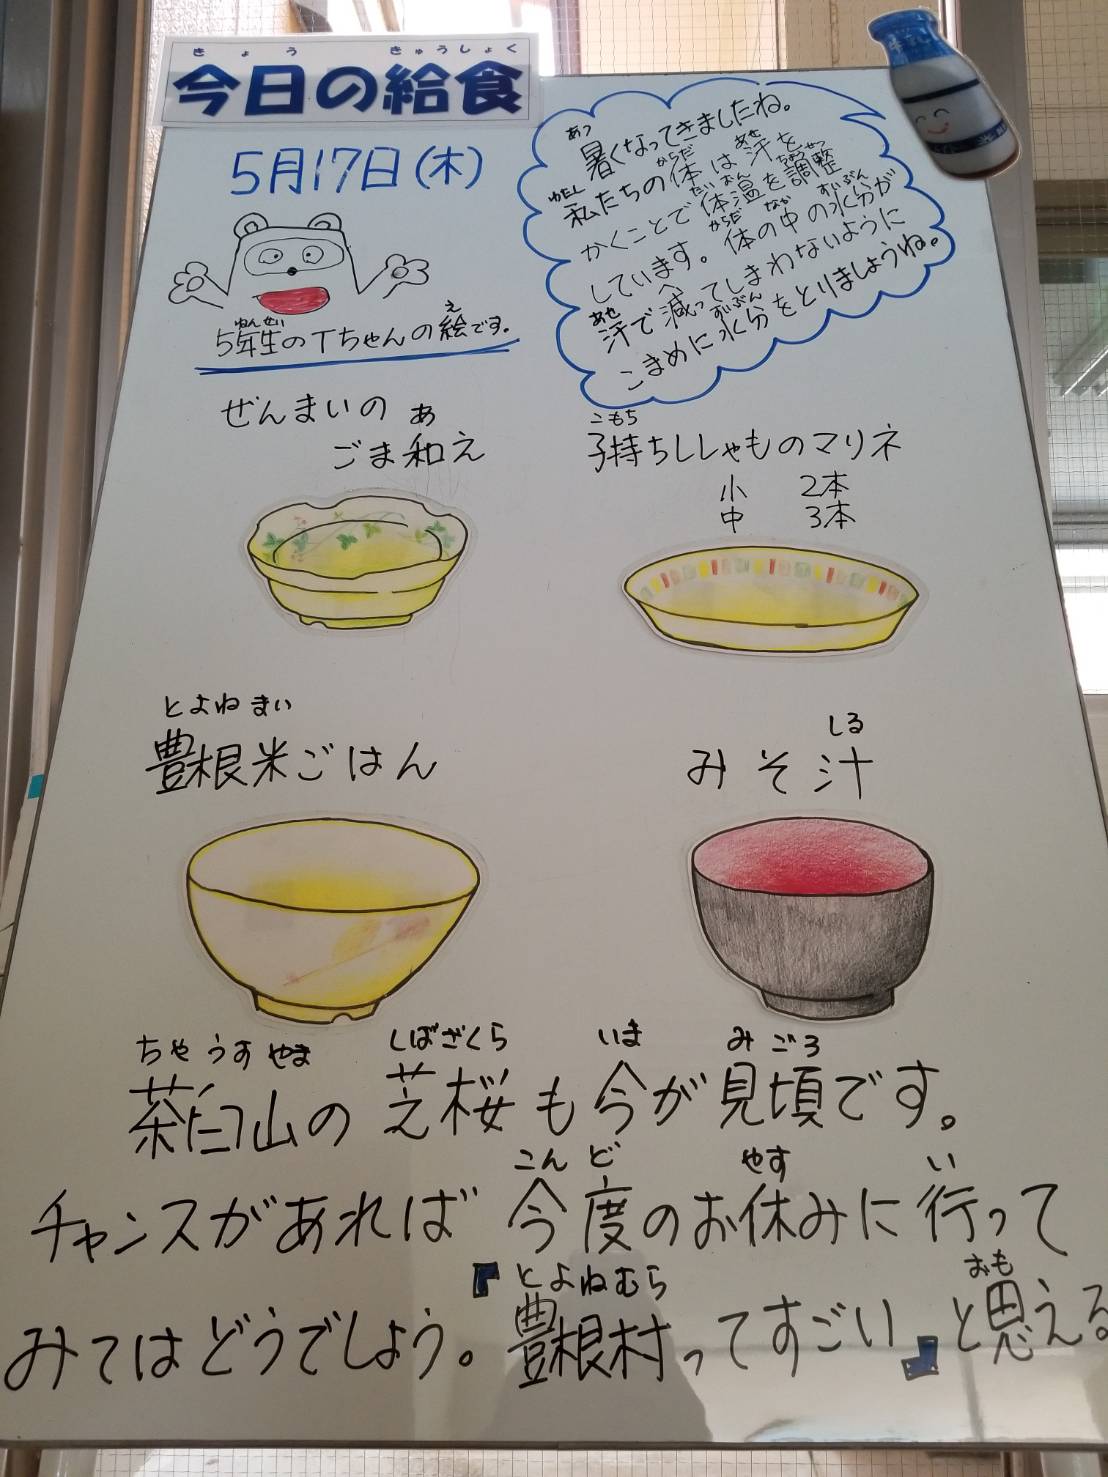 きょう きゅうしょく
今日の給食
5月17日(木)
あつ
暑くなってきましたね。
わたし からだ あせ
私たちの体は汗を
たいおん ちょうせつ
かくことで体温を調整
からだ なか すいぶん
しています。体の中の水分が
あせ へ
汗で減ってしまわないように
すいぶん
こまめに水分をとりましょうね。
ねんせい え
5年生のTちゃんの絵です。
ぜんまいの
あ
ごま和え
こもち
子持ちししゃものマリネ
小 2本
中 3本
とよねまい
豊根米ごはん
しる
みそ汁
ちゃうすやま しばざくら いま みごろ
茶臼山の芝桜も今が見頃です。
こんど やす い
チャンスがあれば今度のお休みに行って
とよねむら おも
みてはどうでしょう。『豊根村ってすごい』と思える